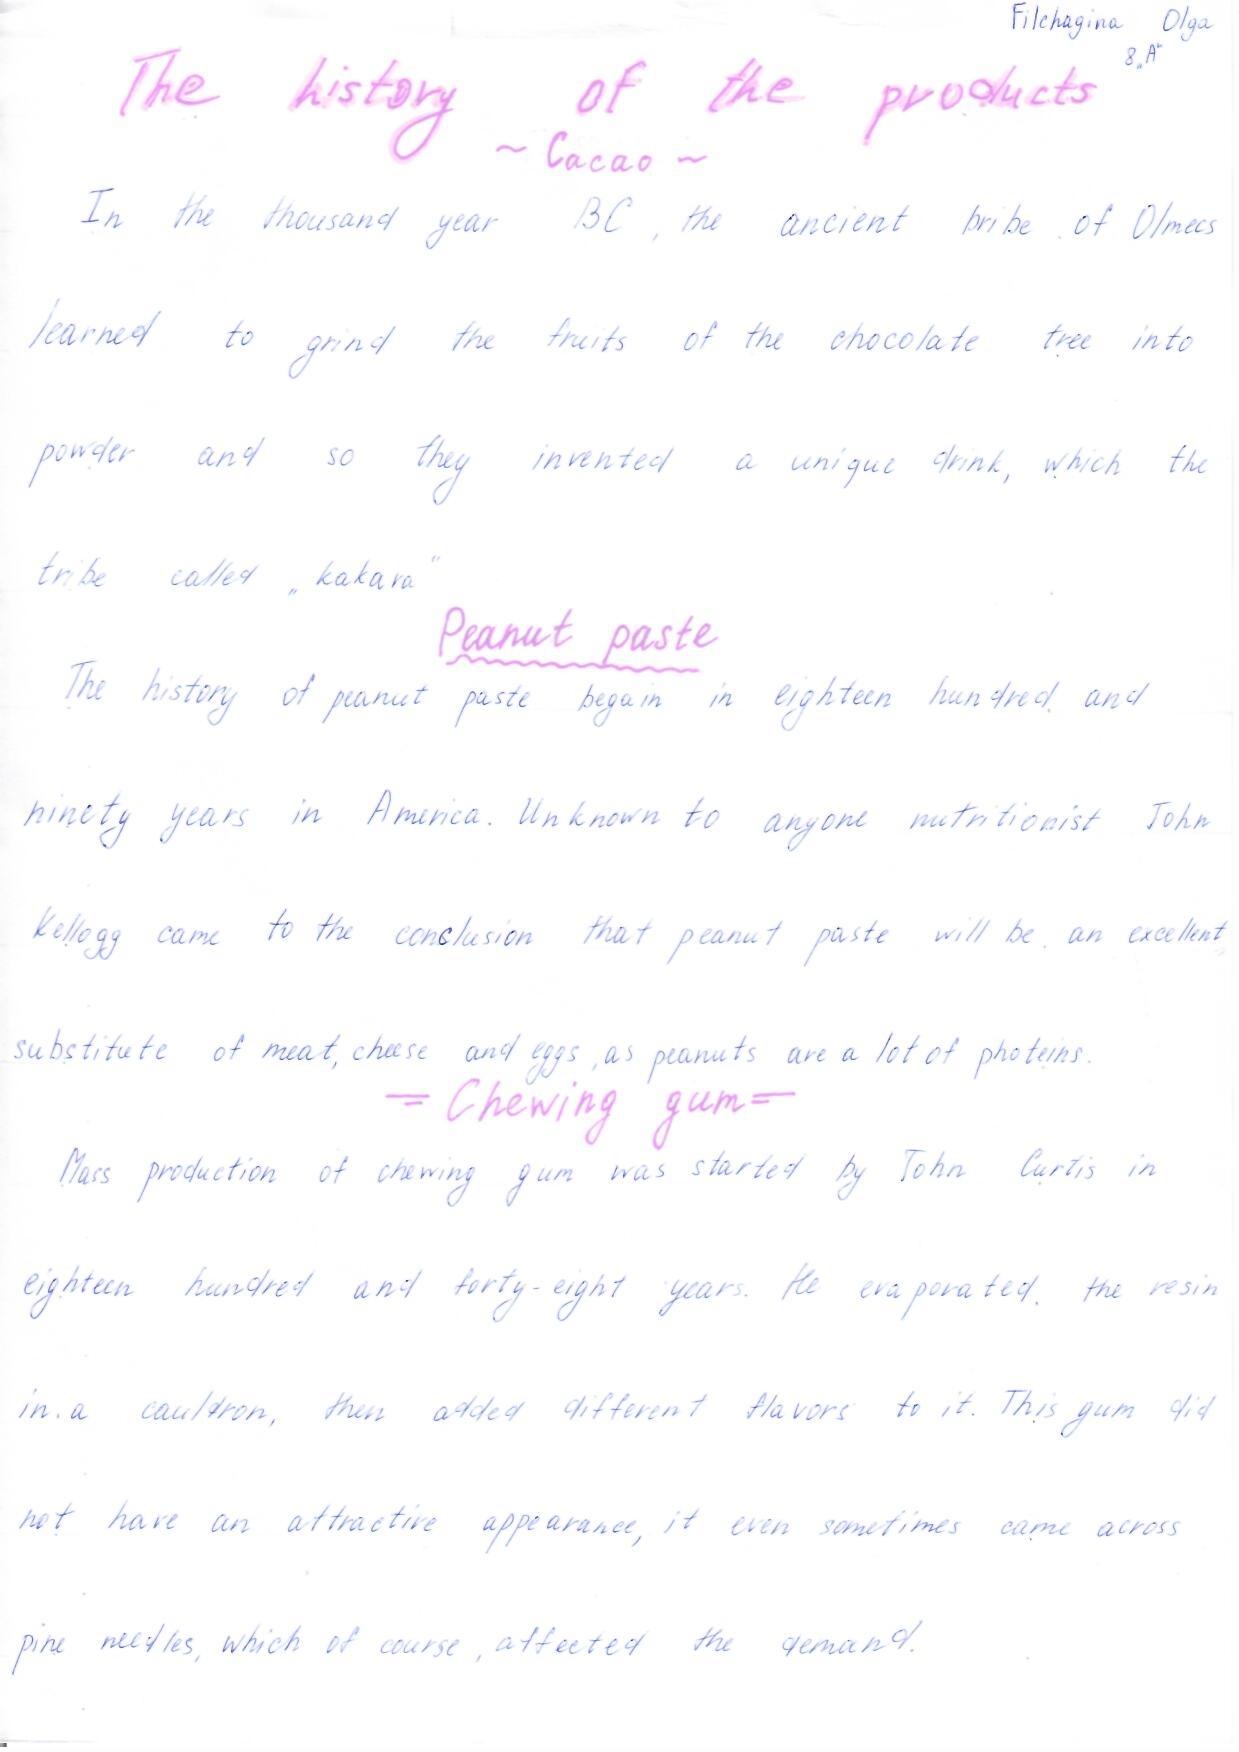 Filchagina Olga
8 „A"
The history of the products
~ Cacao ~
In the thousand year BC, the ancient bribe of Olmecs
learned to grind the fruits of the chocolate tree into
powder and so they invented a unique drink, which the
tribe called „kakava"
Peanut paste
The history of peanut paste begain in eighteen hundred and
ninety years in America. Unknown to anyone nutritionist John
Kellogg came to the conclusion that peanut paste will be an excellent
substitute of meat, cheese and eggs, as peanuts are a lot of photeins.
= Chewing gum =
Mass production of chewing gum was started by John Curtis in
eighteen hundred and forty-eight years. He evaporated the resin
in a cauldron, then added different flavors to it. This gum did
not have an attractive appearance, it even sometimes came across
pine needles, which of course, affected the demand.